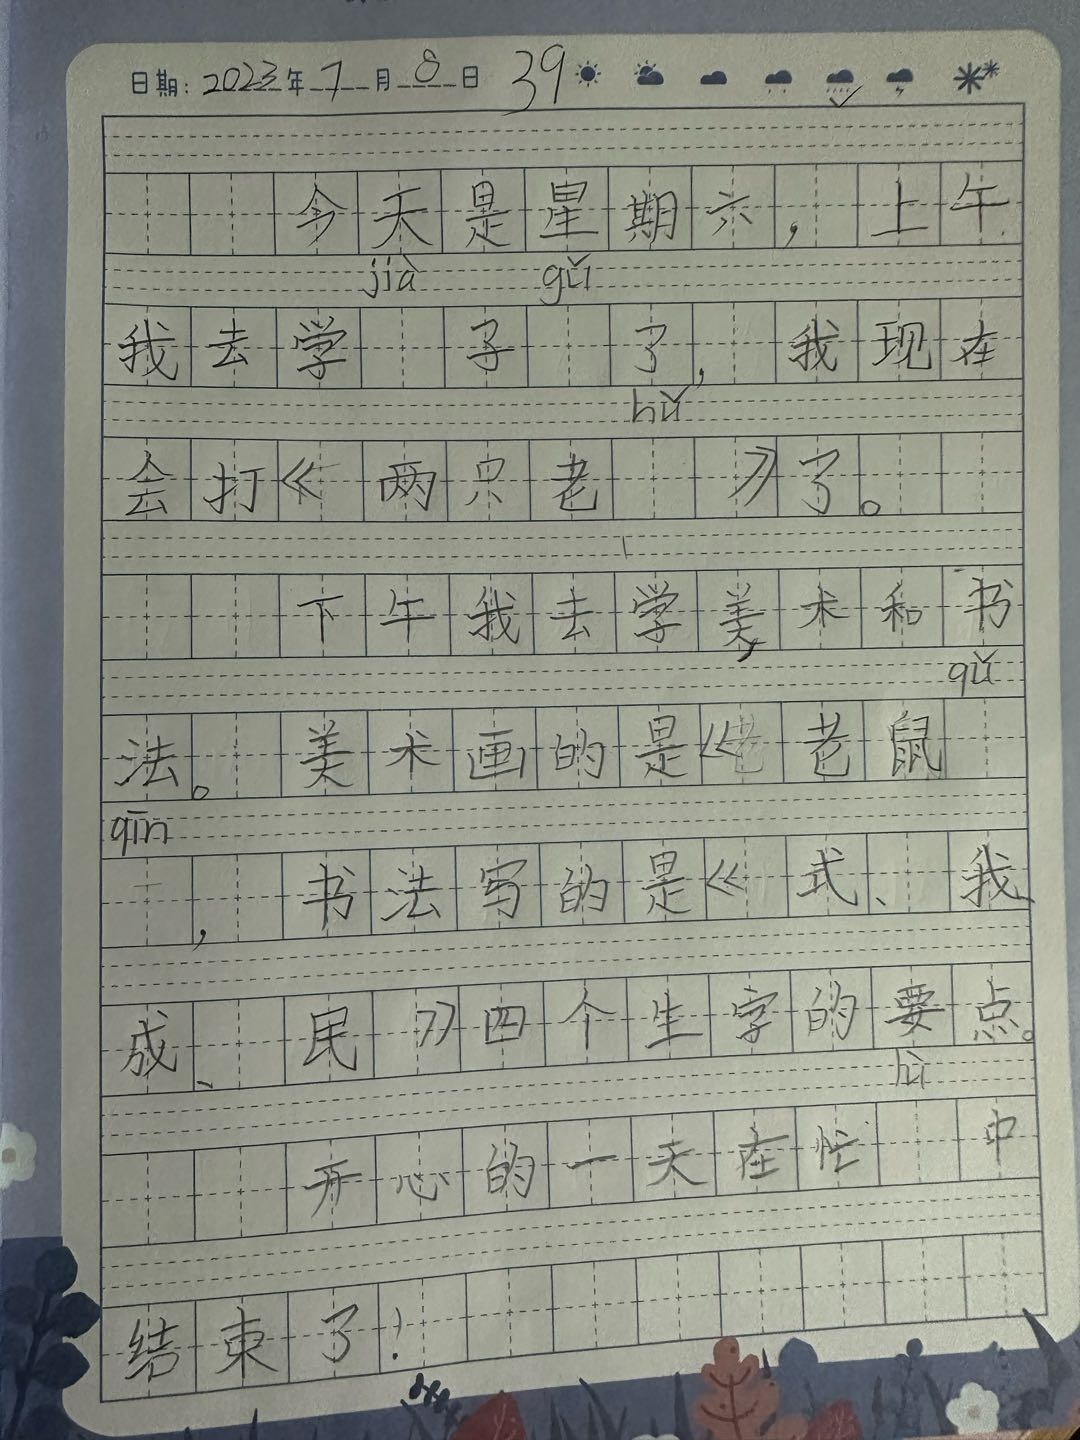 日期：2023年7月8日 39
今天是星期六，上午
jià gǔ
我去学 子 了，我现在
hǔ
会打《两只老 》了。
下午我去学美术和书
qǔ
法。美术画的是《老鼠
qīn
，书法写的是《式、我
成、民》四个生字的要点。
lù
开心的一天在忙 中
结束了！